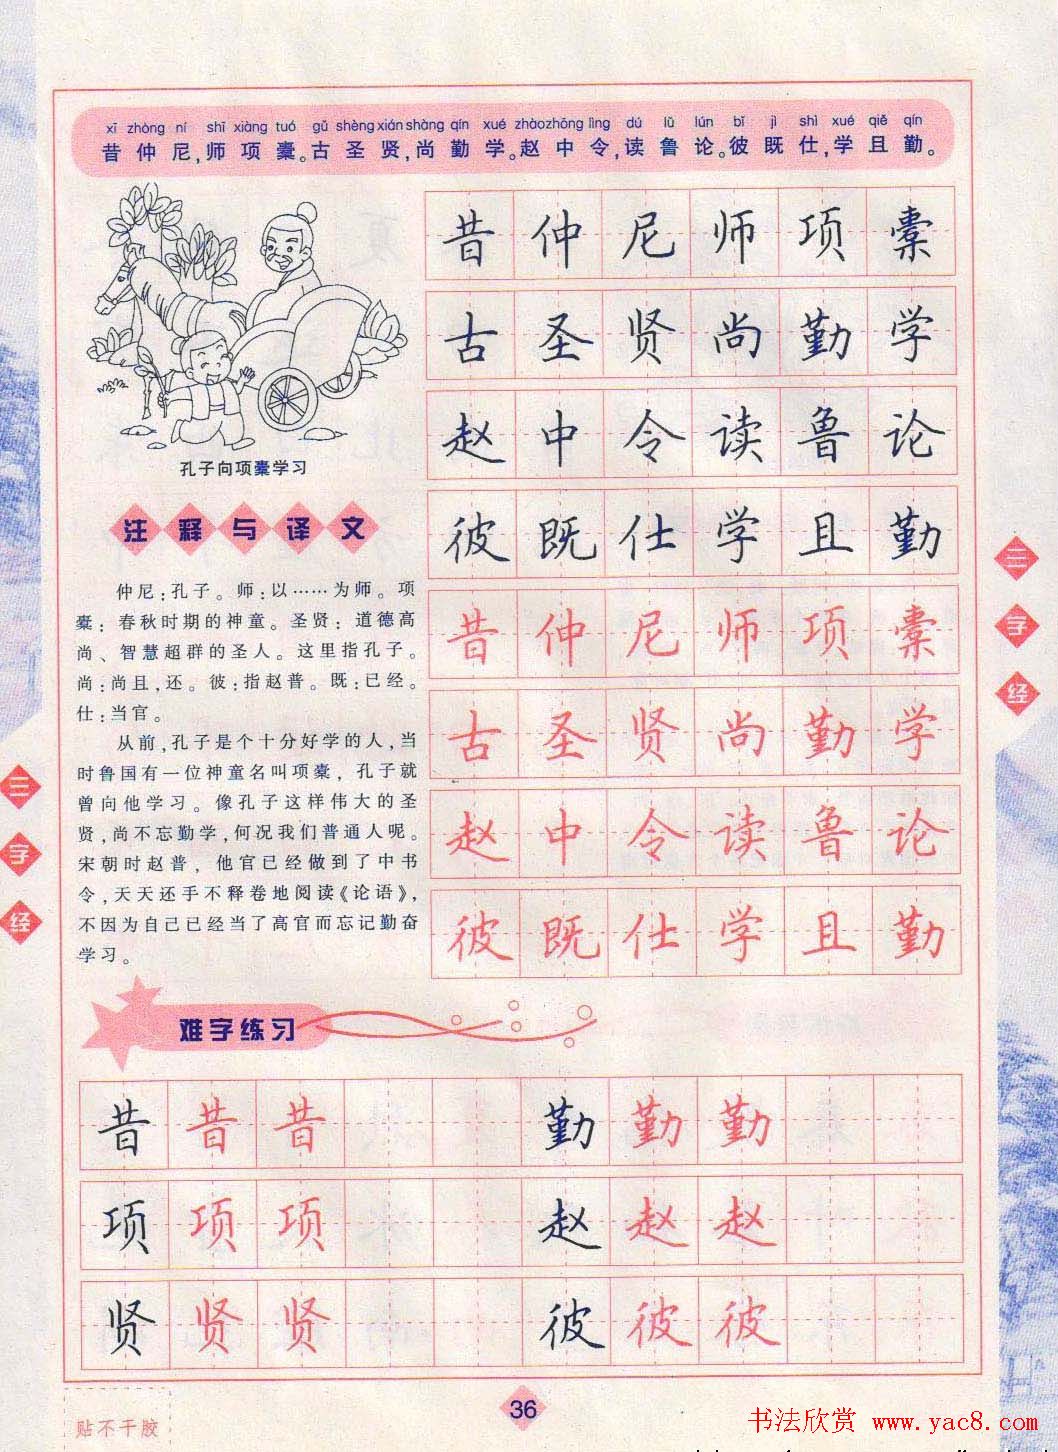 xī zhòng ní shī xiàng tuó gǔ shèng xián shàng qín xué zhào zhōng lìng dú lǔ lún bǐ jì shì xué qiě qín
昔仲尼,师项橐。古圣贤,尚勤学。赵中令,读鲁论。彼既仕,学且勤。
孔子向项橐学习
注释与译文
仲尼:孔子。师:以……为师。项
橐:春秋时期的神童。圣贤:道德高
尚、智慧超群的圣人。这里指孔子。
尚:尚且,还。彼:指赵普。既:已经。
仕:当官。
从前,孔子是个十分好学的人,当
时鲁国有一位神童名叫项橐,孔子就
曾向他学习。像孔子这样伟大的圣
贤,尚不忘勤学,何况我们普通人呢。
宋朝时赵普,他官已经做到了中书
令,天天还手不释卷地阅读《论语》,
不因为自己已经当了高官而忘记勤奋
学习。
昔仲尼师项橐
古圣贤尚勤学
赵中令读鲁论
彼既仕学且勤
昔仲尼师项橐
古圣贤尚勤学
赵中令读鲁论
彼既仕学且勤
三字经
三字经
难字练习
昔昔昔 勤勤勤
项项项 赵赵赵
贤贤贤 彼彼彼
36
贴不干胶
书法欣赏 www.yac8.com